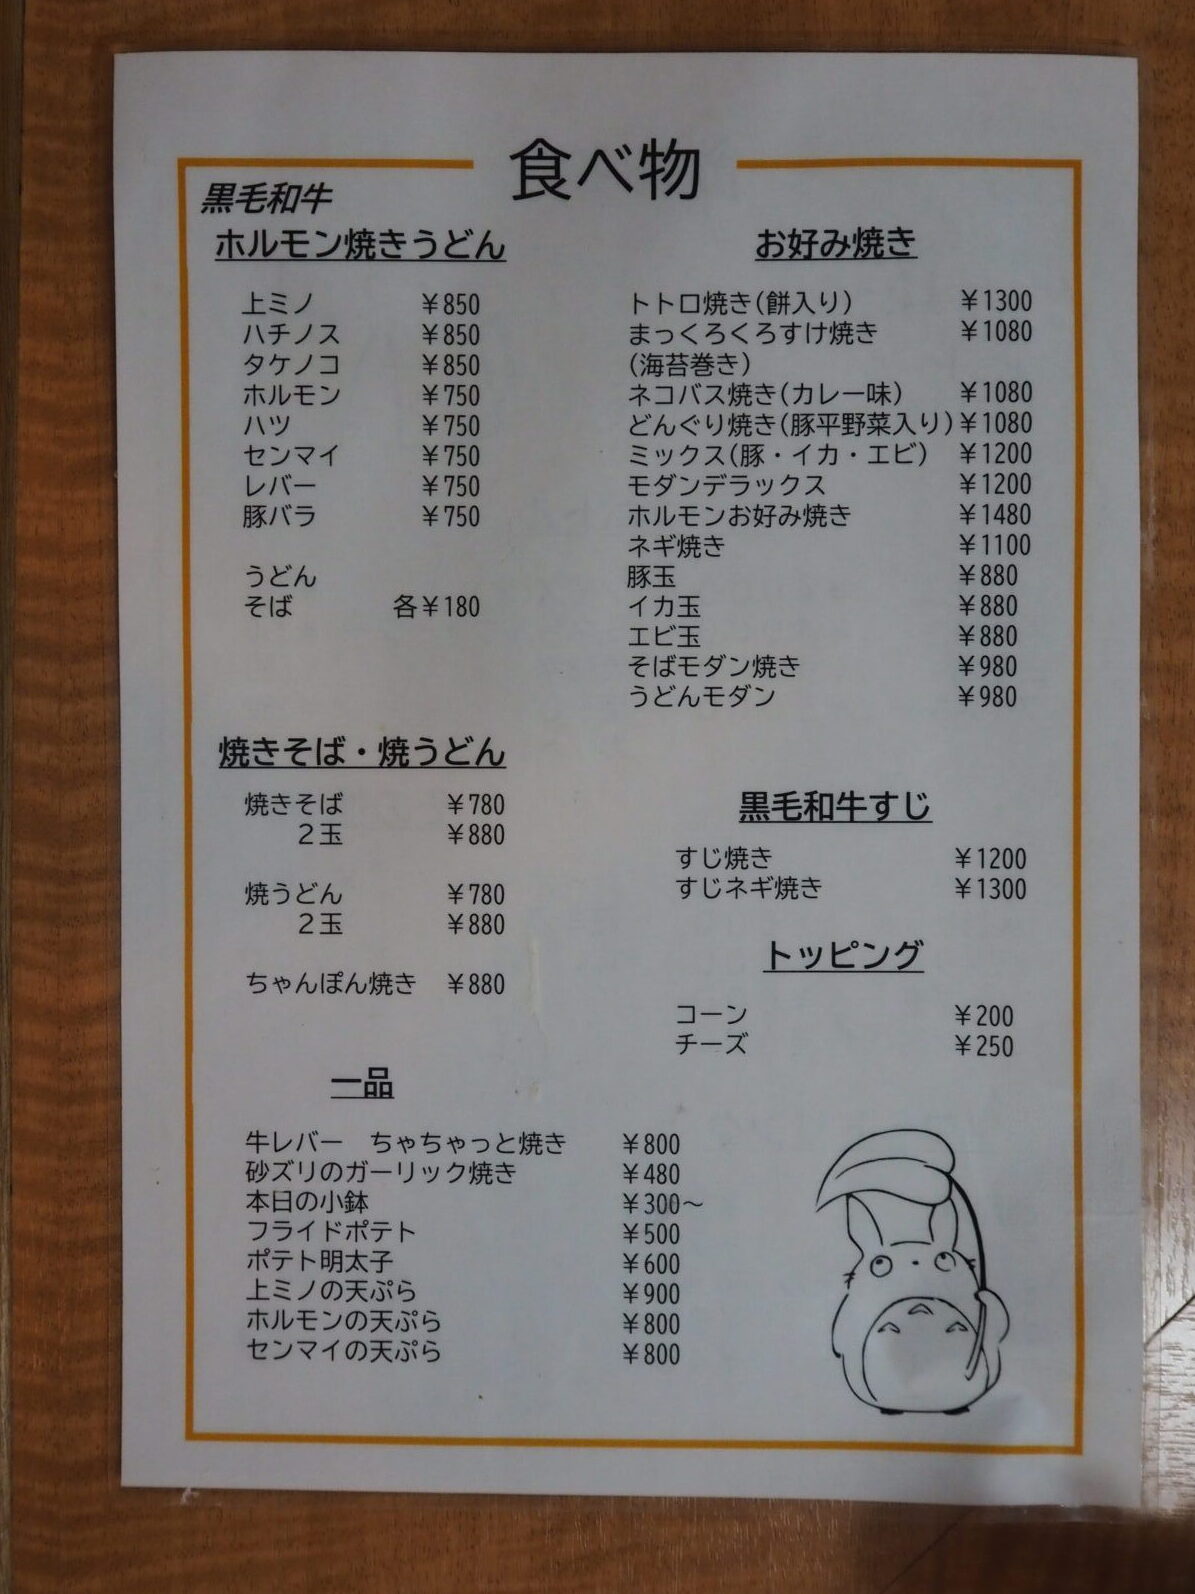 食べ物
黒毛和牛
ホルモン焼きうどん
上ミノ ¥850
ハチノス ¥850
タケノコ ¥850
ホルモン ¥750
ハツ ¥750
センマイ ¥750
レバー ¥750
豚バラ ¥750
うどん
そば 各¥180
焼きそば・焼うどん
焼きそば ¥780
２玉 ¥880
焼うどん ¥780
２玉 ¥880
ちゃんぽん焼き ¥880
一品
牛レバー ちゃちゃっと焼き ¥800
砂ズリのガーリック焼き ¥480
本日の小鉢 ¥300～
フライドポテト ¥500
ポテト明太子 ¥600
上ミノの天ぷら ¥900
ホルモンの天ぷら ¥800
センマイの天ぷら ¥800
お好み焼き
トトロ焼き(餅入り) ¥1300
まっくろくろすけ焼き ¥1080
(海苔巻き)
ネコバス焼き(カレー味) ¥1080
どんぐり焼き(豚平野菜入り) ¥1080
ミックス(豚・イカ・エビ) ¥1200
モダンデラックス ¥1200
ホルモンお好み焼き ¥1480
ネギ焼き ¥1100
豚玉 ¥880
イカ玉 ¥880
エビ玉 ¥880
そばモダン焼き ¥980
うどんモダン ¥980
黒毛和牛すじ
すじ焼き ¥1200
すじネギ焼き ¥1300
トッピング
コーン ¥200
チーズ ¥250